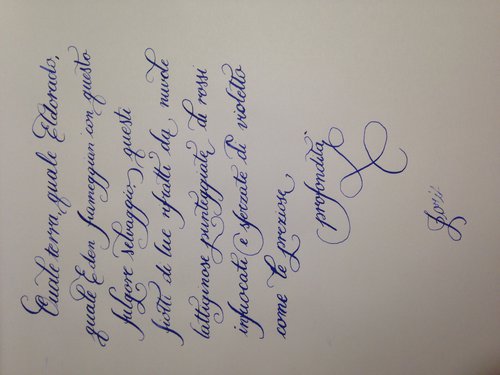 Quale terra, quale Eldorado,
quale Eden fiameggian con questo
fulgore selvaggio, questi
fiotti di luce rifratti da nuvole
lattiginose punteggiate di rossi
infuocati e sferzate di violetto
come le preziose
profondità